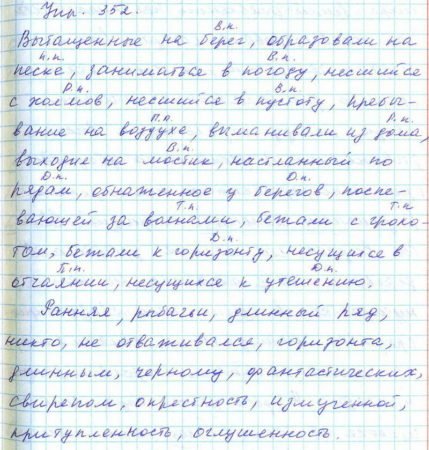 Упр. 352.
В.п.
Вытащенные на берег, образовали на
П.п. В.п.
песке, заниматься в погоду, несшийся
Р.п. В.п.
с холмов, несшийся в пустоту, пребы-
П.п. Р.п.
вание на воздухе, выманивали из дома,
В.п.
выходил на мостик, настланный по
Д.п. Р.п.
рядам, обнаженное у берегов, поспе-
Т.п. Т.п.
вающей за волнами, бежали с грохо-
Д.п.
том, бежали к горизонту, несущихся в
П.п. Д.п.
отчаянии, несущихся к утешению.
Ранняя, рыбачьи, длинный ряд,
никто, не отваживался, горизонта,
длинным, черному, фантастических,
свирепом, опрестность, измученной,
притупленность, оглушенность.